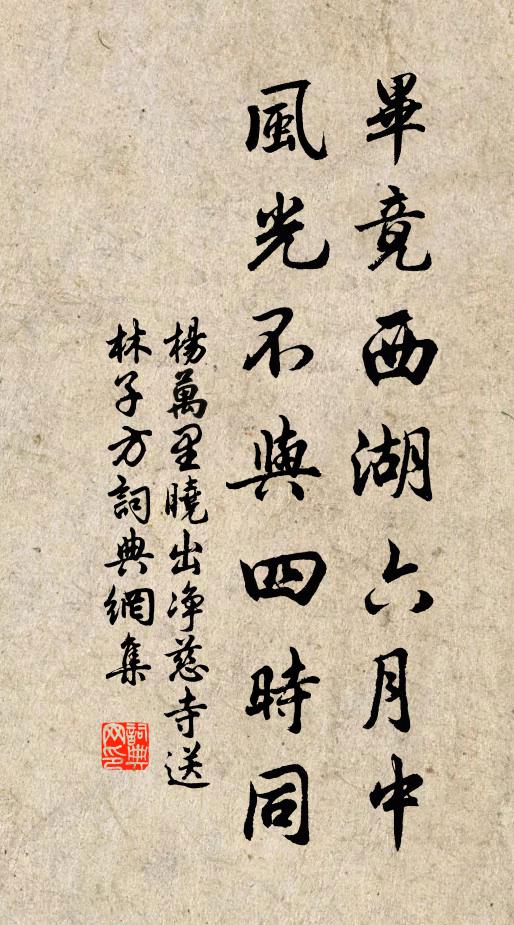 畢竟西湖六月中
風光不與四時同
楊萬里曉出净慈寺送
林子方詞典網集
詞典
网印